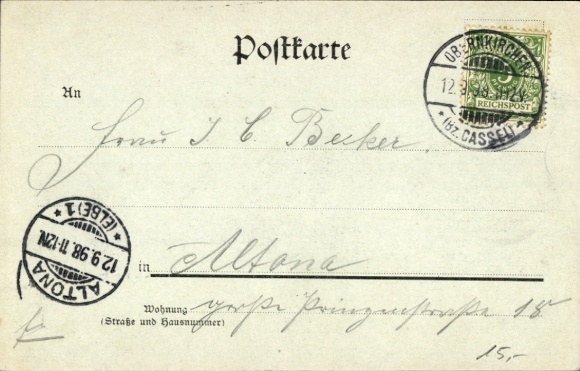 Postkarte
OBERNKIRCHEN
12.9.98.
* (BZ. CASSEL) *
5
REICHSPOST
An
Frau J C. Becker.
in Altona
Wohnung große Prinzenstraße 18
(Straße und Hausnummer)
ALTONA
12.9.98. 11-12N.
* (ELBE) 1 *
15,-